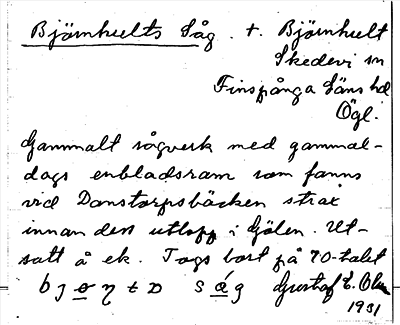 Björnhults Såg. t. Björnhult
Skedevi sn
Finspånga Läns hd
Ögl.
Gammalt sågverk med gammal-
dags enbladsram som fanns
vid Danstorpsbäcken strax
innan dess utlopp i Gölen. Ut-
satt å ek. Togs bort på 70-talet
såg Gustaf E.
1931